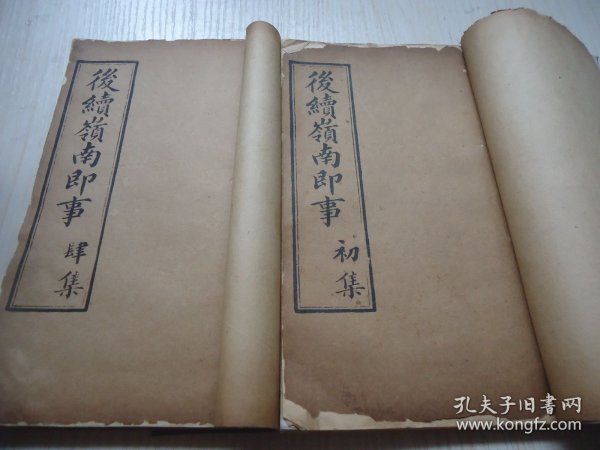 後續嶺南即事
肆集
後續嶺南即事
初集
孔夫子旧书网
www.kongfz.com